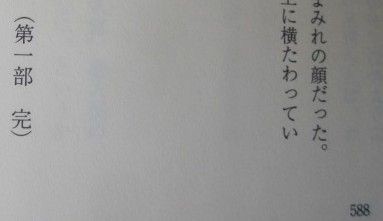 まみれの顔だった。
上に横たわってい
(第一部　完)
588